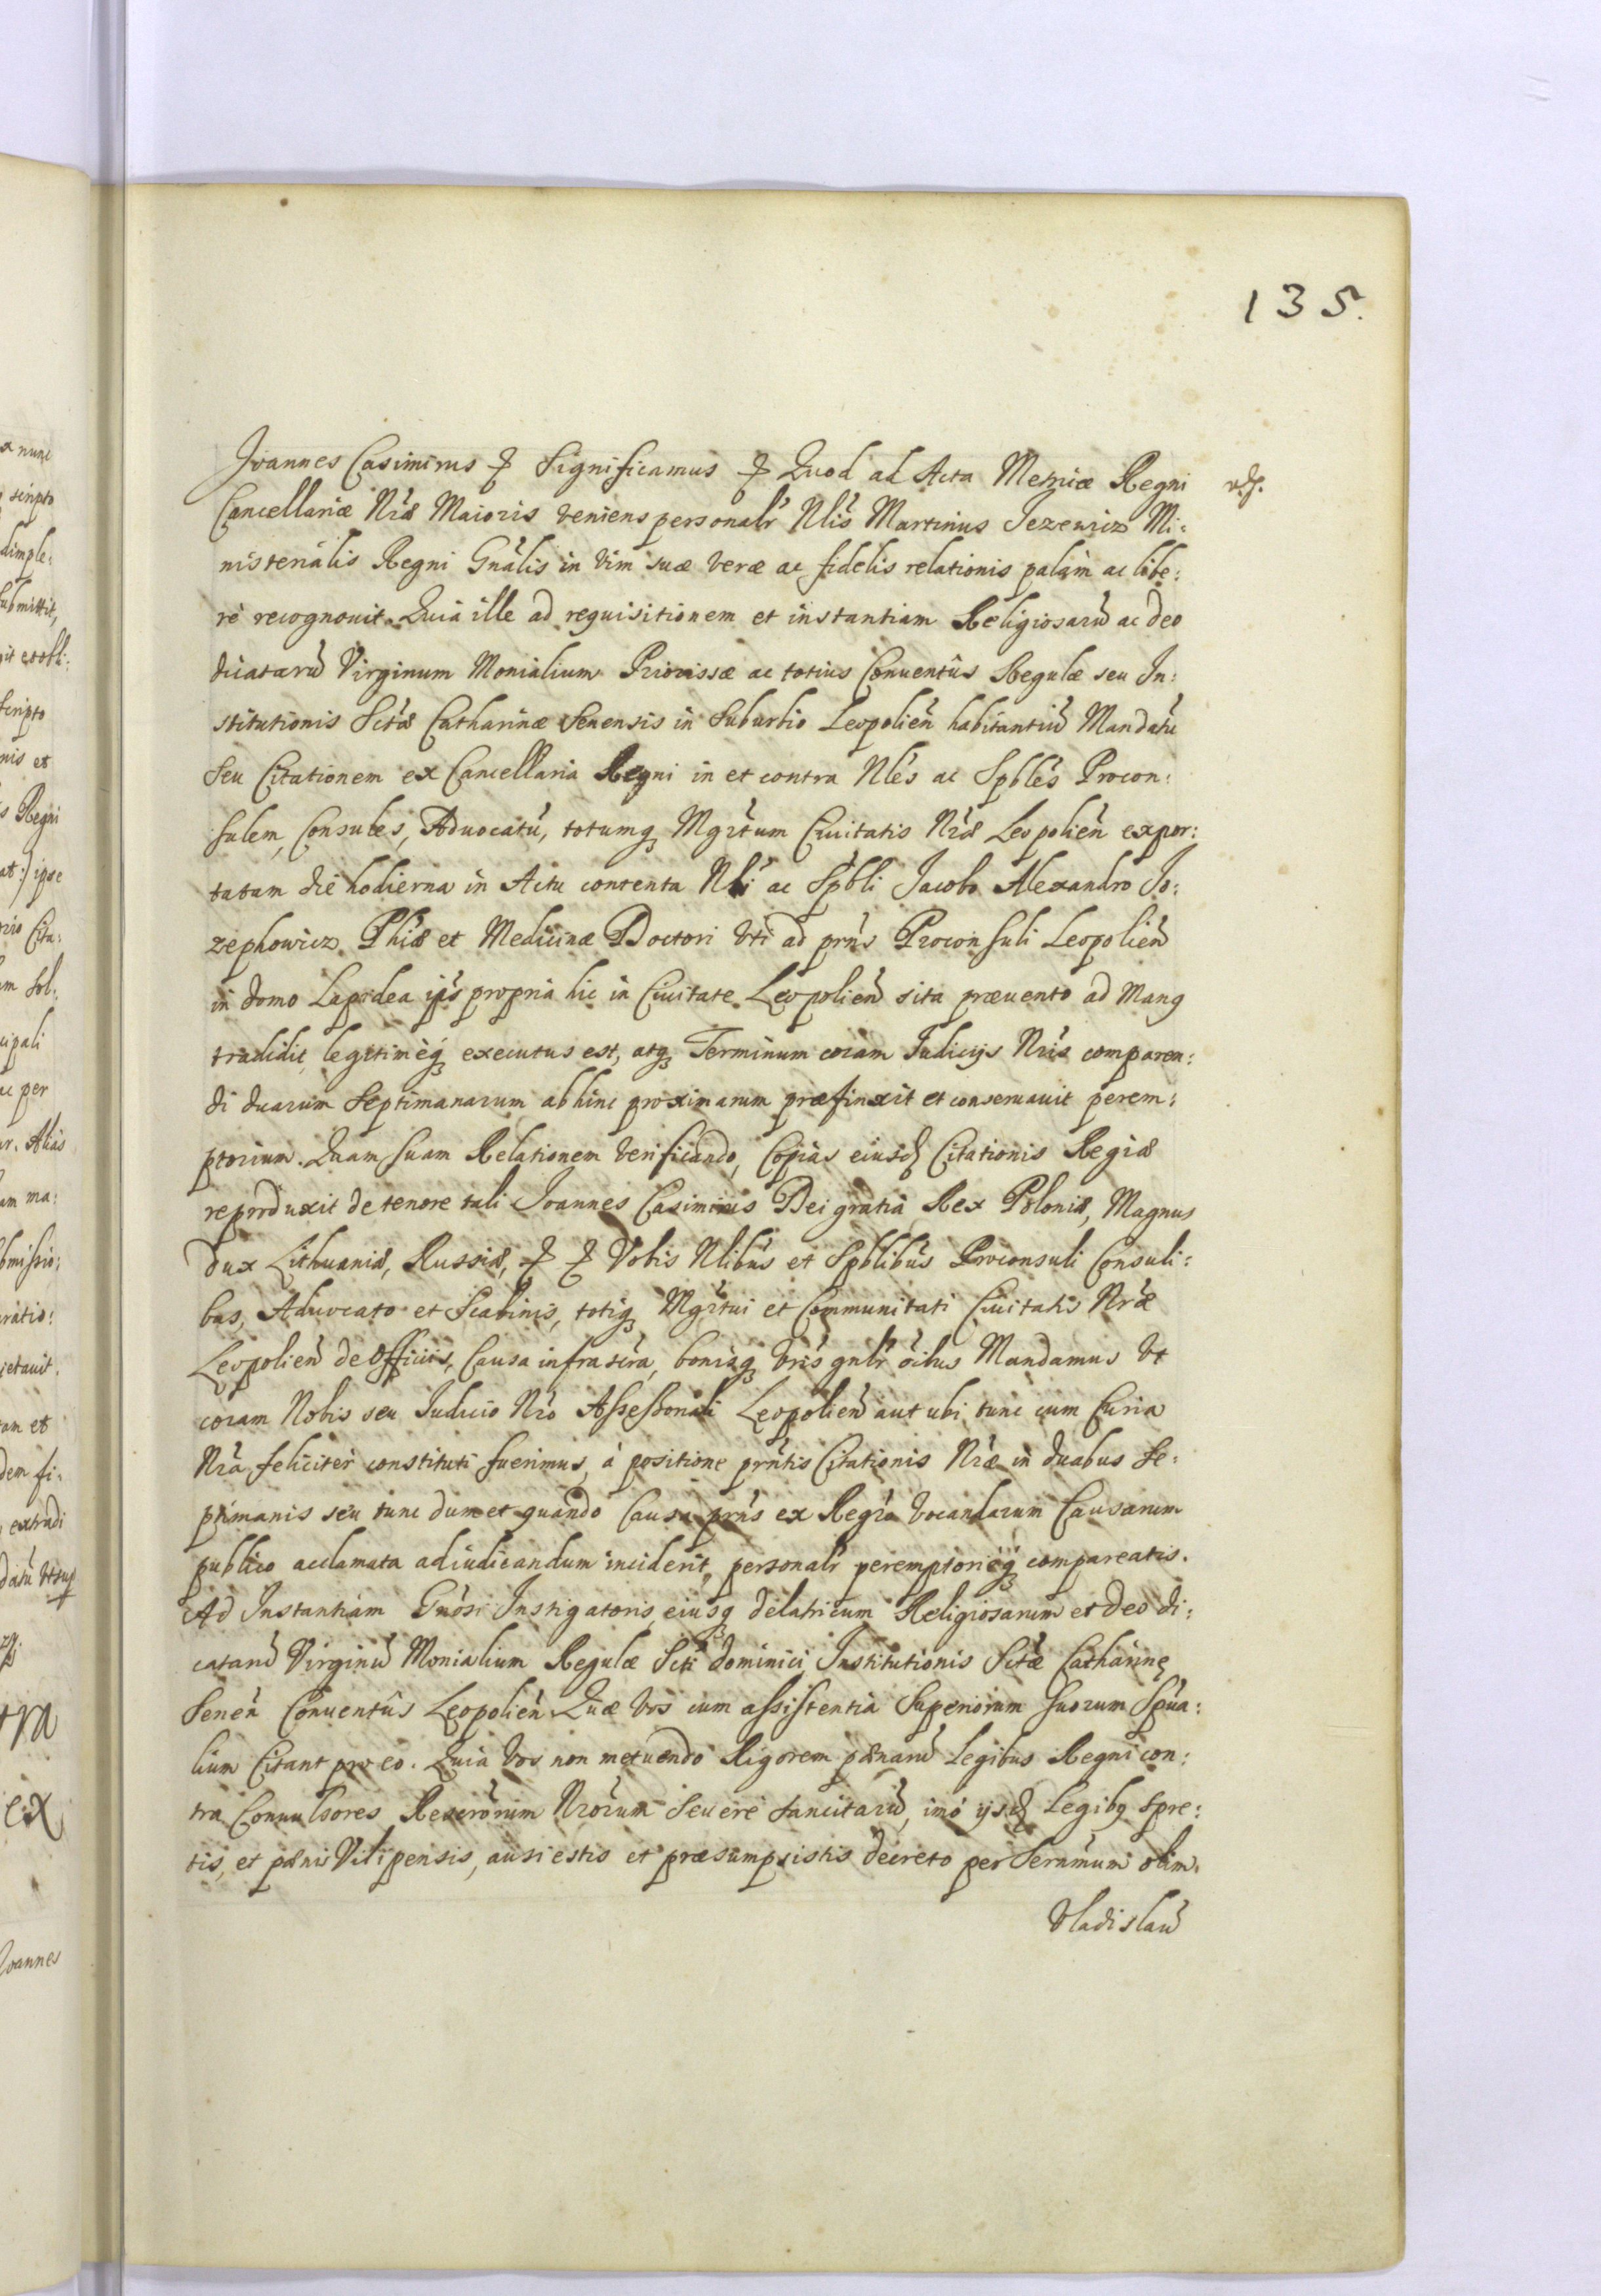 135.
Joannes Casimirus & Significamus & Quod ad Acta Metricæ Regni
Cancellariæ Nræ Maioris veniens personalr Nlis Martinus Jezewicz Mi:
nisterialis Regni Gnalis in vim suæ veræ ac fidelis relationis palàm ac libe:
rè recognouit. Quia ille ad requisitionem et instantiam Religiosarū ac deo
dicatarū Virginum Monialium Priorissæ ac totius Conuentûs Regulæ seu In:
stitutionis Sctæ Catharinæ Senensis in Suburbio Leopolien̄ habitantiū Mandatū
Seu Citationem ex Cancellaria Regni in et contra Nles ac Spbles Procon:
sulem, Consules, Aduocatū, totumq Mgrtum Ciuitatis Nræ Leopolien̄ expor:
tatam die hodierna in Actu contenta Nbli ac Spbli Jacobo Alexandro Jo:
zephowicz Phiæ et Medicinæ Doctori vti ad prns Proconsuli Leopolien̄
in domo Lapidea ipīs propria hic in Ciuitate Leopolien̄ sita præuento ad Manq
tradidit, legitimèq executus est, atq Terminum coram Iudicijs Nris comparen:
di duarum Septimanarum abhinc proximarum præfinxit et conseruauit perem:
ptorium. Quam suam Relationem verificando, Copiàs eiusd Citationis Regiæ
reproduxit de tenore tali Joannes Casimirus Dei gratià Rex Poloniæ, Magnus
Dux Lithuaniæ, Russiæ, & & Vobis Nlibus et Spblibus Proconsuli Consuli:
bus, Aduocato et Scabinis, totiq Mgrtui et Communitati Ciuitatis Nræ
Leopolien̄ de Officiis, Causa infrascra, bonisq vris gnlr oibus Mandamus vt
coram Nobis seu Iudicio Nro Assessoriali Leopolien̄ aut ubi tunc cum Curia
Nra feliciter constituti fuerimus, à positione prntis Citationis Nræ in duabus Se:
ptimanis seu tunc dum et quando Causa prns ex Regro vocandarum Causarum
publico acclamata adiudicandum inciderit, personalr peremptorièq compareatis.
Ad Instantiam Gnosi Instigatoris, eiusq delatricum Religiosarum et Deo di:
catarū Virginū Monialium Regulæ Scti Dominici Institutionis Sctæ Catharinę
Senen̄ Conuentûs Leopolien̄ Quæ vos cum assistentia Superiorum suorum Spua:
lium Citant pro eo. Quia vos non metuendo Rigorem pænarū Legibus Regni con:
tra Conuulsores Rescrorum Nrorum Seuerè Sancitarū, imò ijsd Legibq spre:
tis, et pænis Vilipensis, ausi estis et præsumpsistis decreto per Sernmum olim
Vladislaū